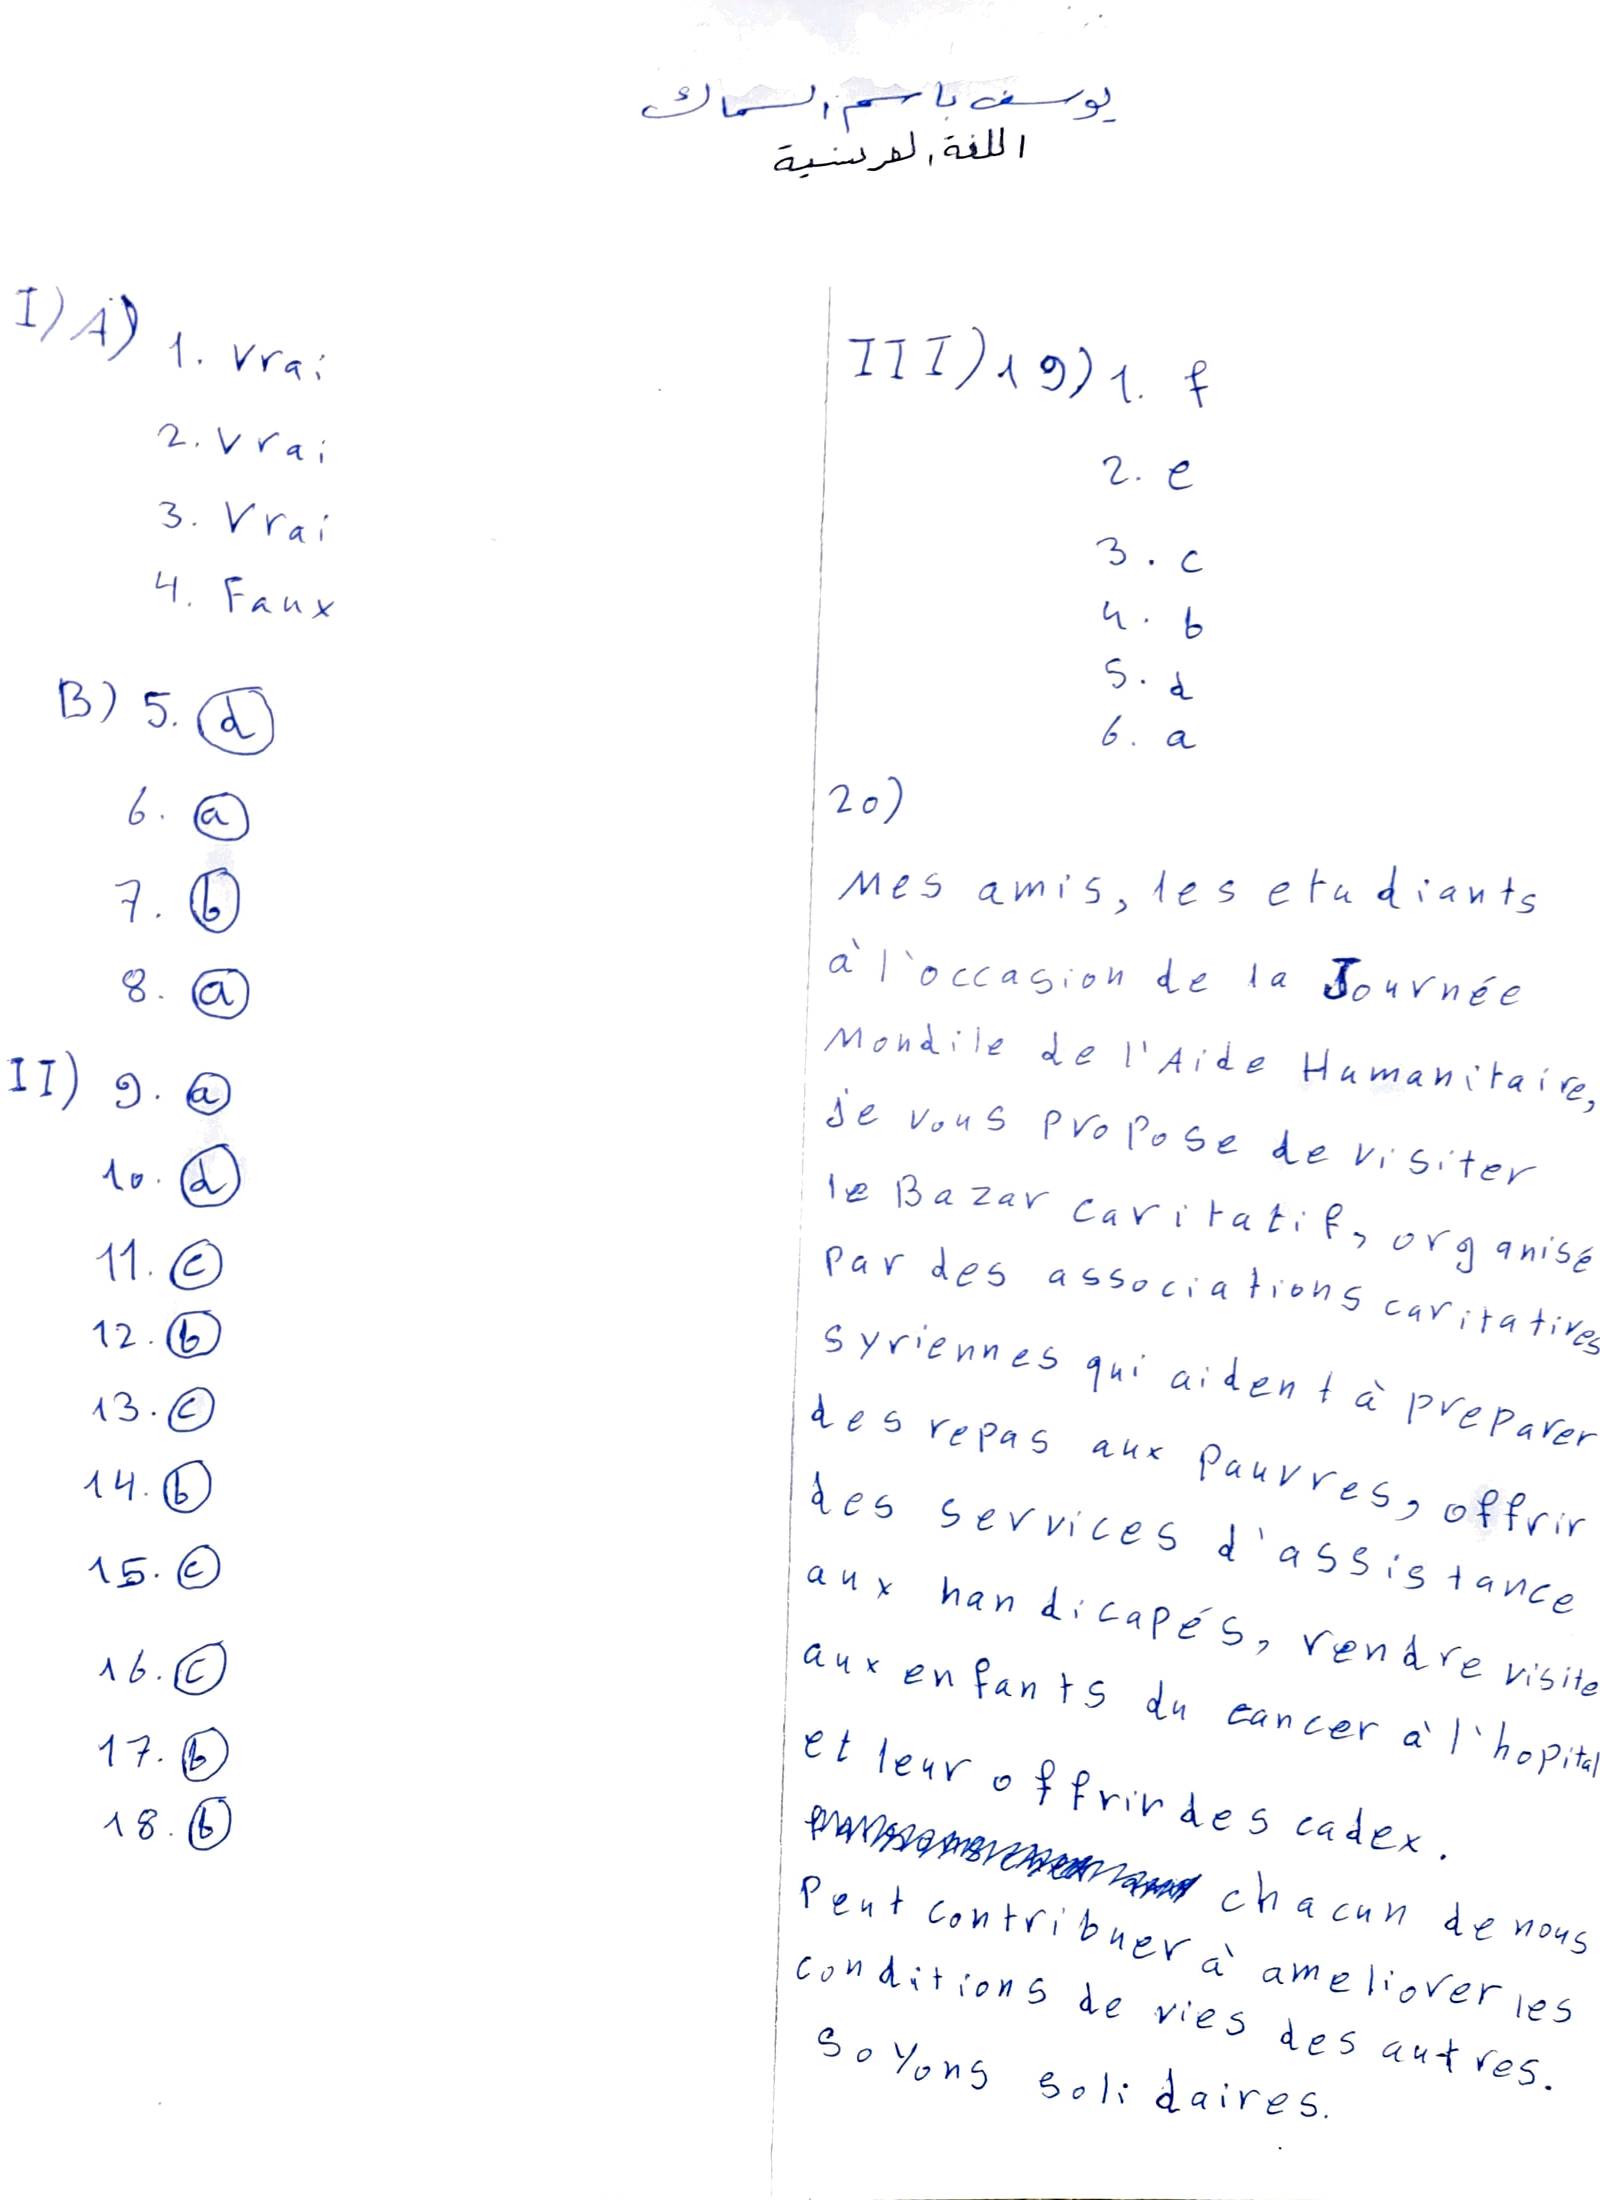 يوسف باسم السماك
اللغة الفرنسية
I) A) 1. Vrai
2. Vrai
3. Vrai
4. Faux
B) 5. d
6. a
7. b
8. a
II) 9. a
10. d
11. c
12. b
13. c
14. b
15. c
16. c
17. b
18. b
III) 19) 1. f
2. e
3. c
4. b
5. d
6. a
20)
Mes amis, les etudiants
à l'occasion de la Journée
Mondile de l'Aide Humanitaire,
je vous propose de visiter
le Bazar caritatif, organisé
par des associations caritatives
syriennes qui aident à preparer
des repas aux pauvres, offrir
des services d'assistance
aux handicapés, rendre visite
aux enfants du cancer à l'hopital
et leur offrir des cadex.
chacun de nous
peut contribuer à ameliorer les
conditions de vies des autres.
Soyons solidaires.